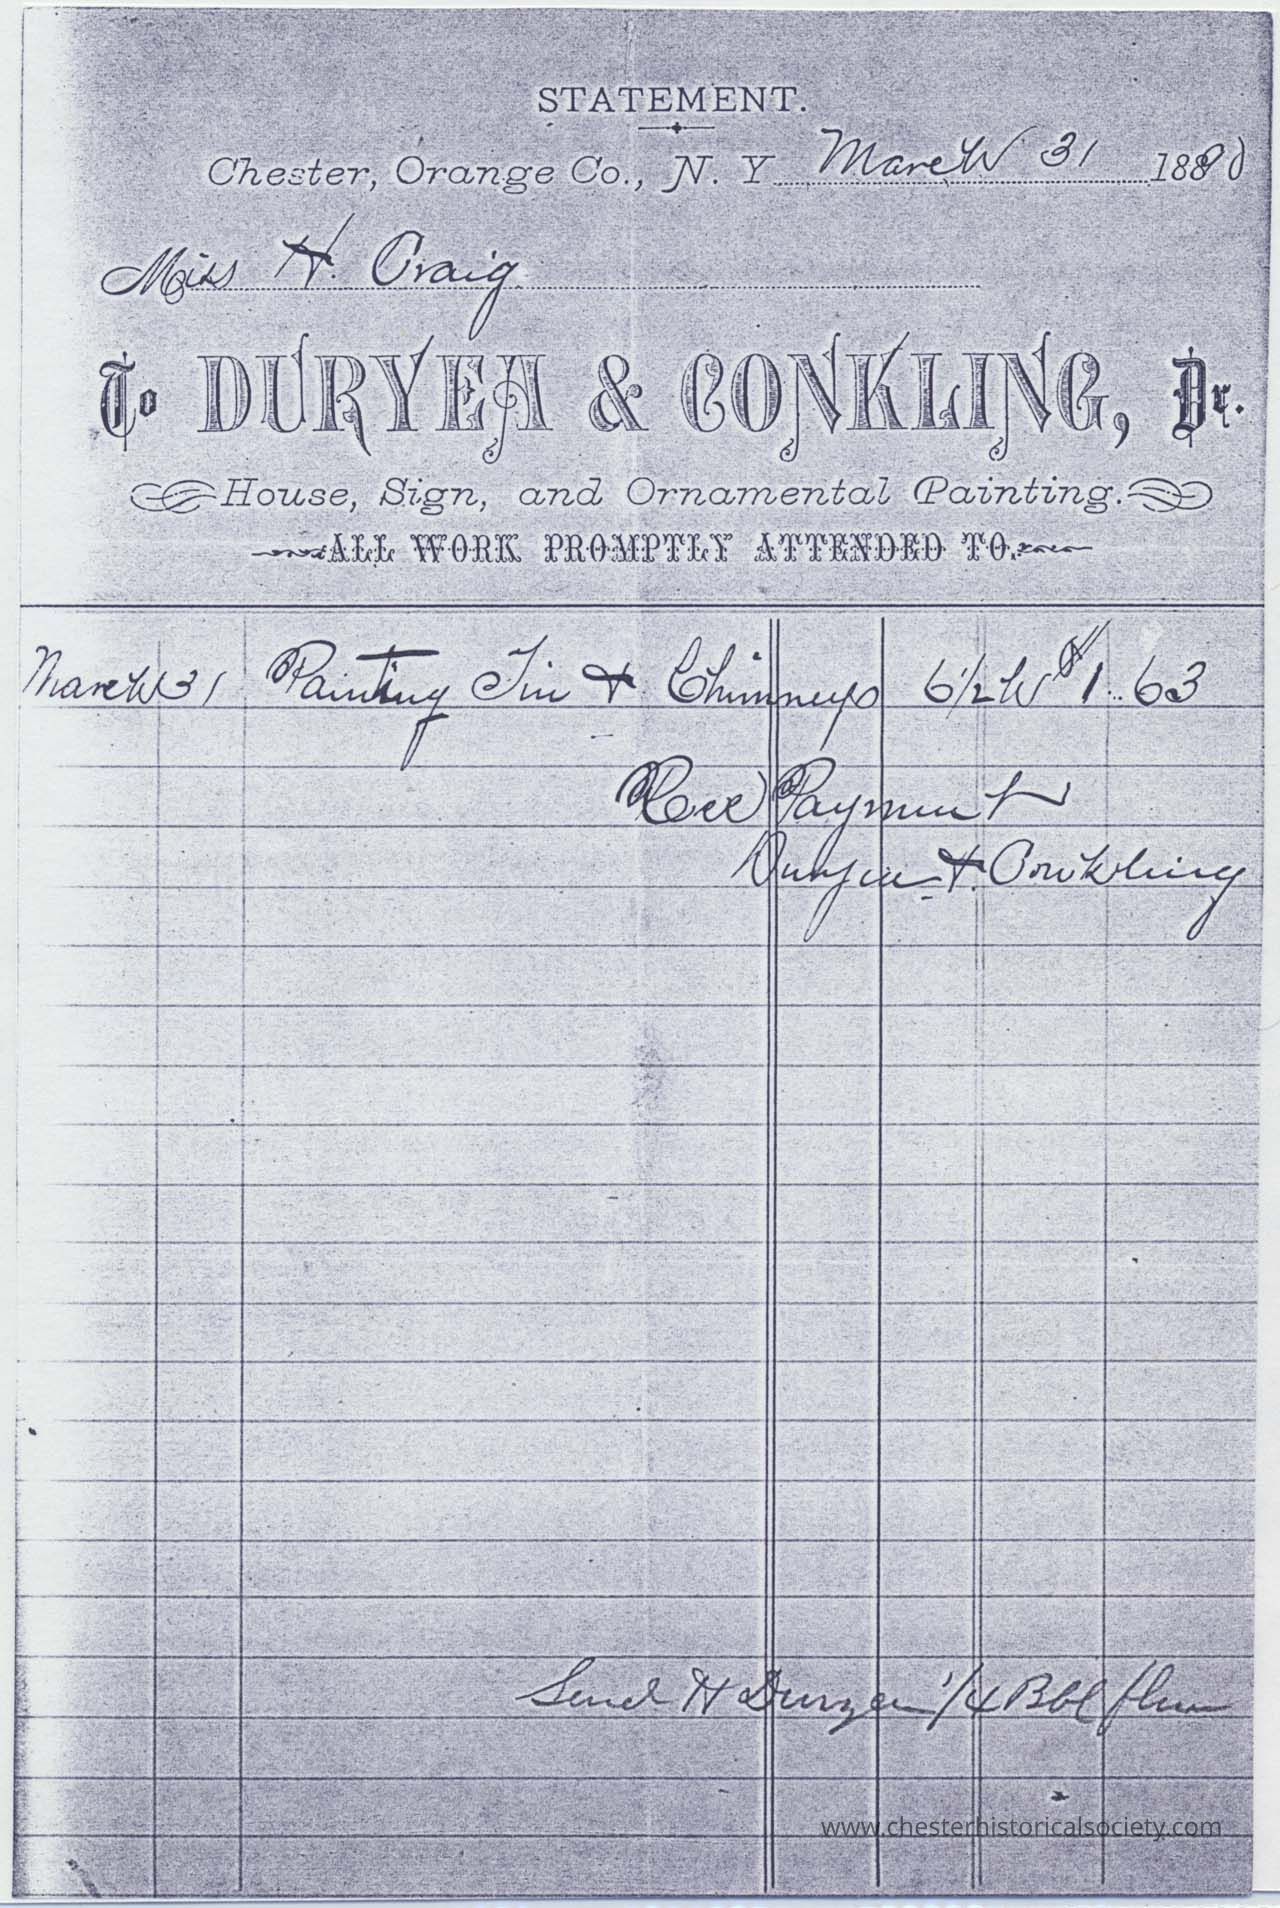 STATEMENT.
Chester, Orange Co., N. Y. March 31 1890
Miss H. Craig
To DURYEA & CONKLING, Dr.
House, Sign, and Ornamental Painting.
ALL WORK PROMPTLY ATTENDED TO.
March 31 Painting Tin & Chimneys 6 1/2 h $1.63
Rec Payment
Duryea & Conkling
Send H Duryea 1/4 Bbl flour
www.chesterhistoricalsociety.com